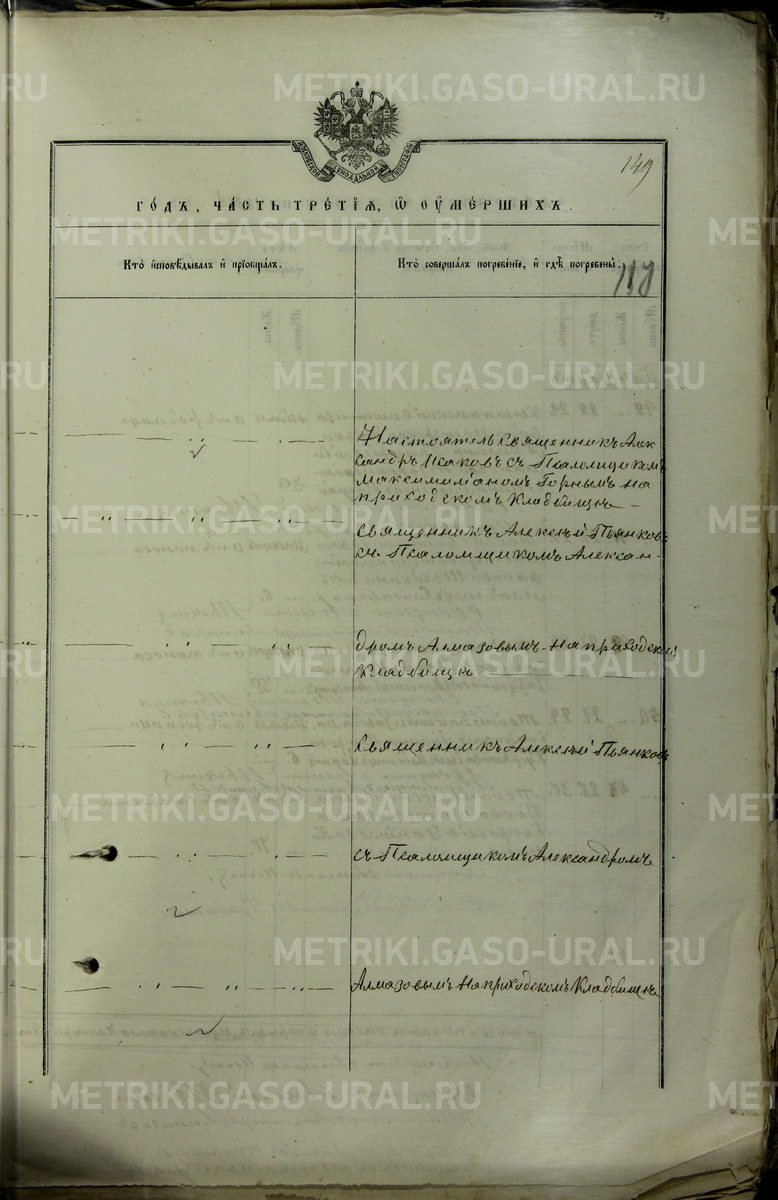 METRIKI.GASO-URAL.RU
149
МОСКОВСКОЙ СѴНОДАЛЬНОЙ ТИПОГРАФІИ
ГО́ДЪ, ЧА́СТЬ ТРЕ́ТІѦ, Ѡ ОУМЕ́РШИХЪ.
Кто̀ и҆сповѣ́дывалъ и҆ прїѡбща́лъ.
Кто̀ соверша́лъ погребе́нїе, и҆ гдѣ̀ погребены̀.
Настоятель Священникъ Алек
сандръ Исаковъ съ Псаломщикомъ
Максимиліаномъ Горнымъ на
приходскомъ Кладбищѣ
Священникъ Алексѣй Пьянковъ
съ Псаломщикомъ Алексан-
дромъ Алмазовымъ на приходском
Кладбищѣ
Священникъ Алексѣй Пьянковъ
съ Псаломщикомъ Александромъ
Алмазовымъ на приходскомъ Кладбищѣ